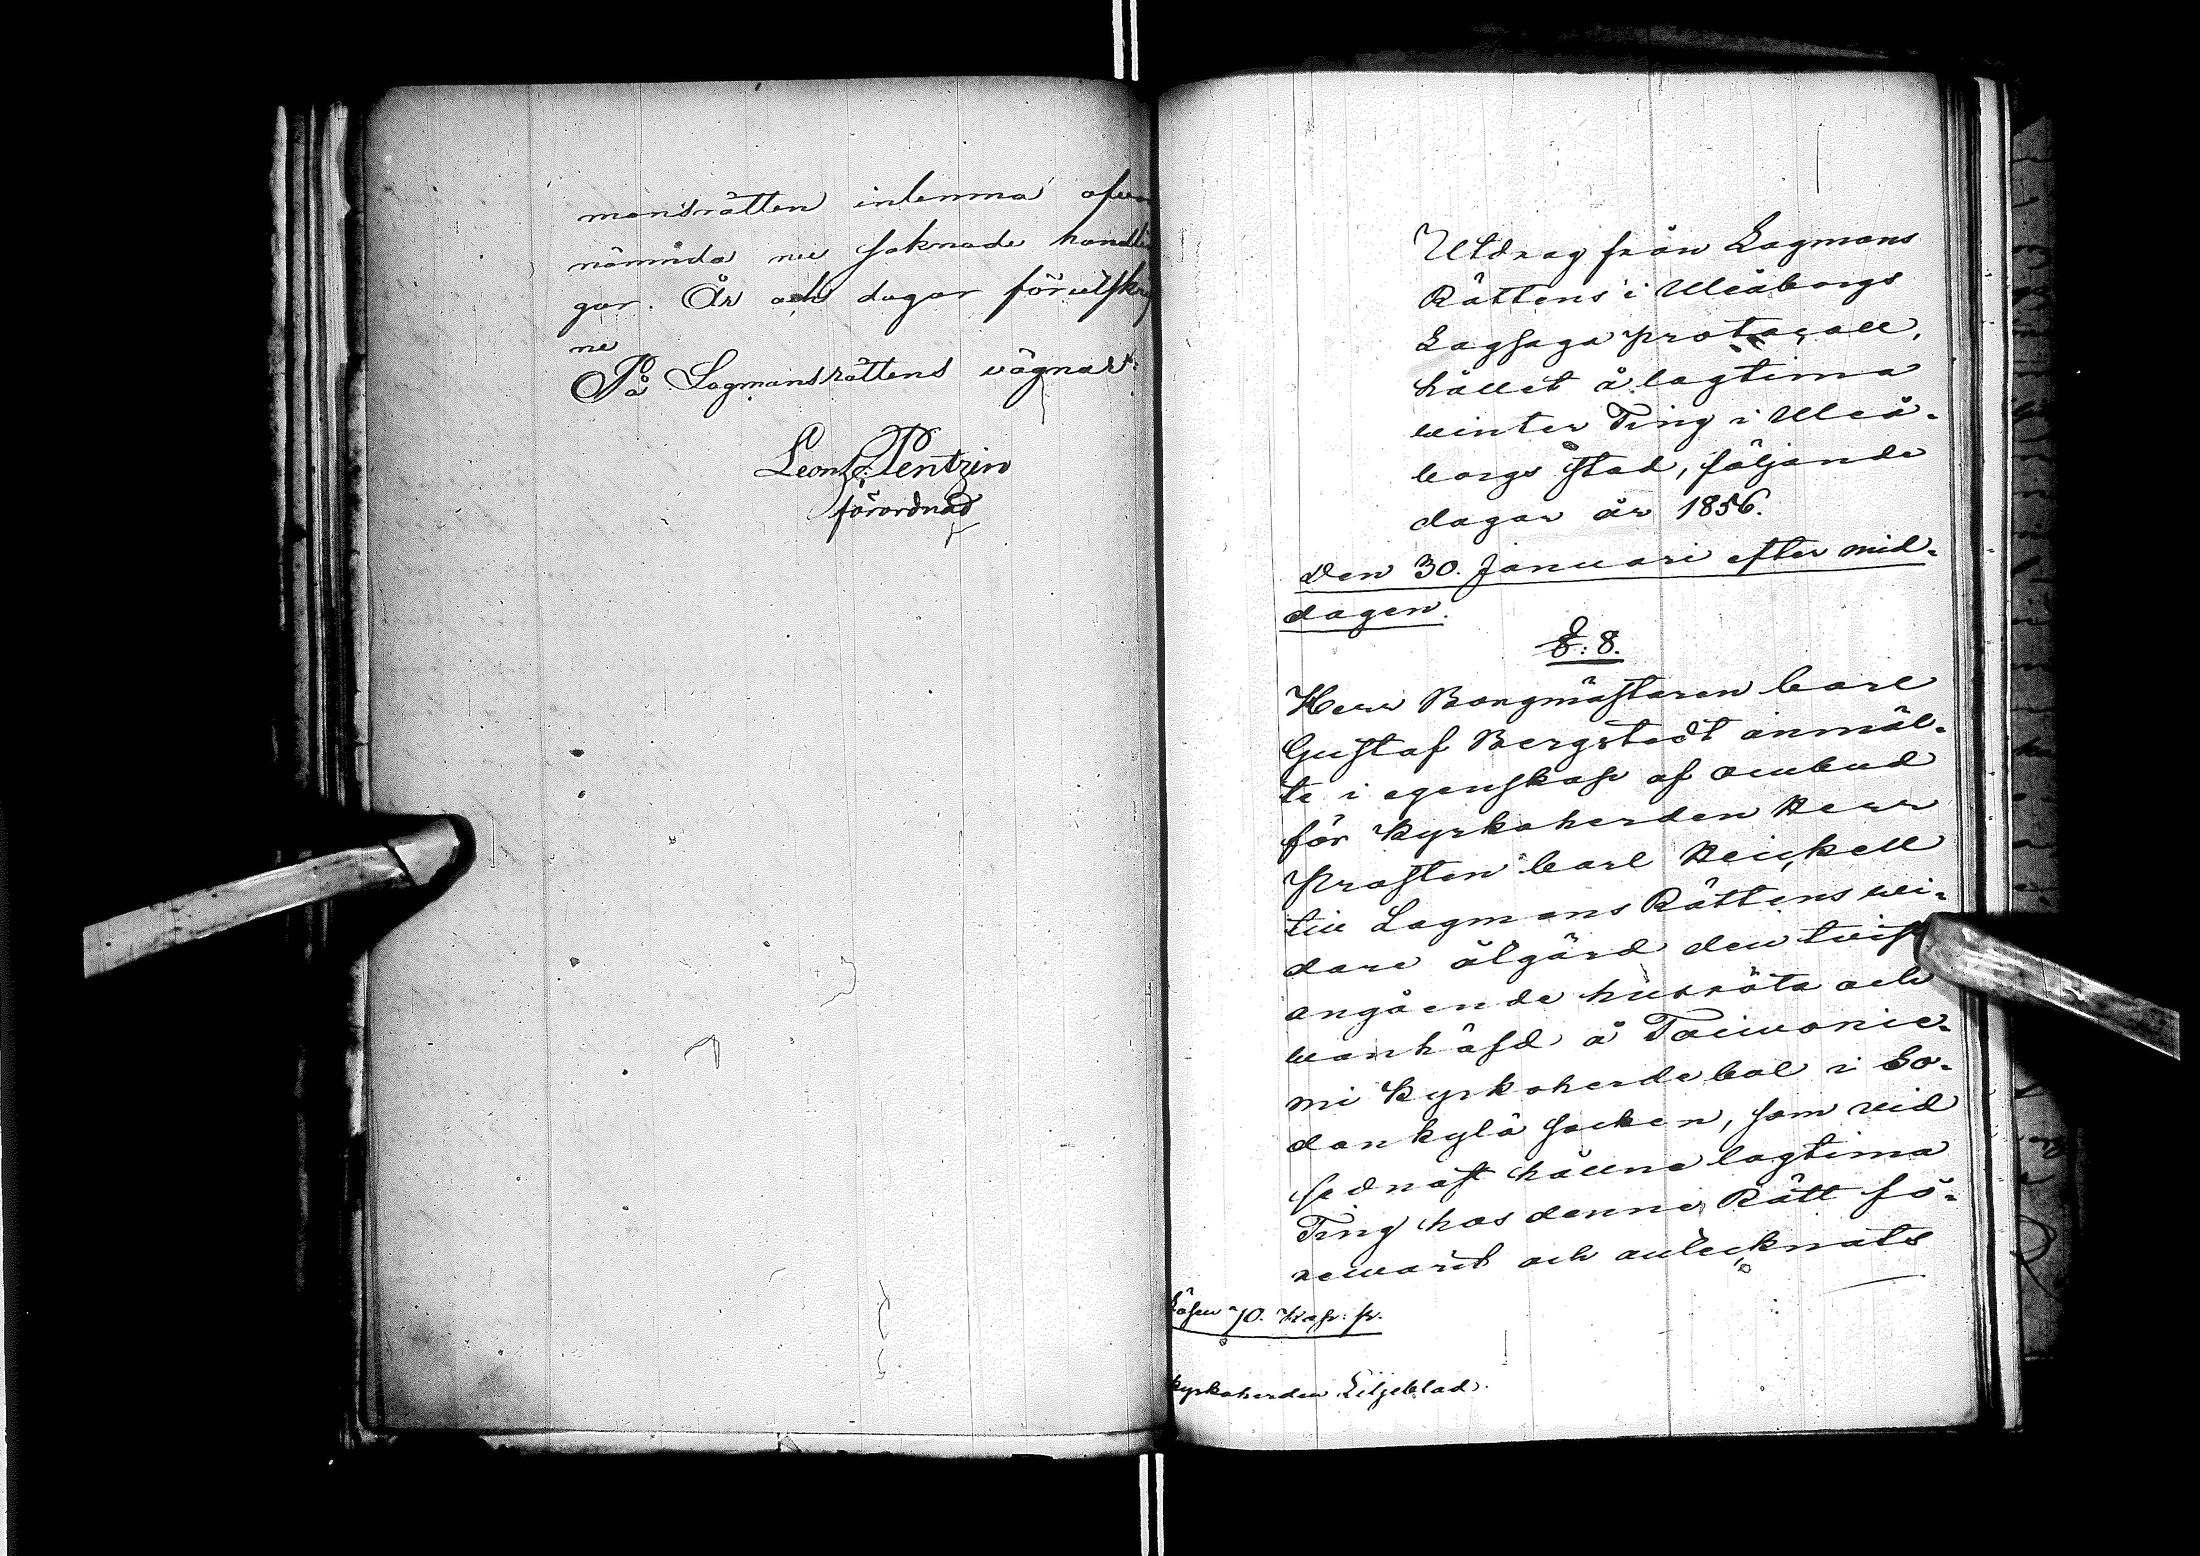 mansrätten inlemna ofvan
nämnda nu saknade handlin
gar. År och dagar förutskrif
ne
På Lagmansrättens vägnar:
Leon. Pentzin
förordnad
Utdrag från Lagmans
Rättens i Uleåborgs
Lagsaga protocoll,
hållet å lagtima
winter Ting i Uleå-
borgs stad, följande
dagar år 1856.
Den 30. Januari efter mid-
dagen.
§: 8.
Herr Borgmästaren Carl
Gustaf Bergstedt anmäl-
te i egenskap af ombud
för Kyrkoherden Herr
Prosten Carl Heickell
till Lagmans Rättens vi-
dare åtgärd den twist
angående husröta och
wanhäfd å Taiwonie-
mi Kyrkoherdebol i So-
dankylä socken, som vid
sednast hållne lagtima
Ting hos denne Rätt fö-
rewarit och antecknats
70. Kop: sr.
Kyrkoherden Liljeblad.